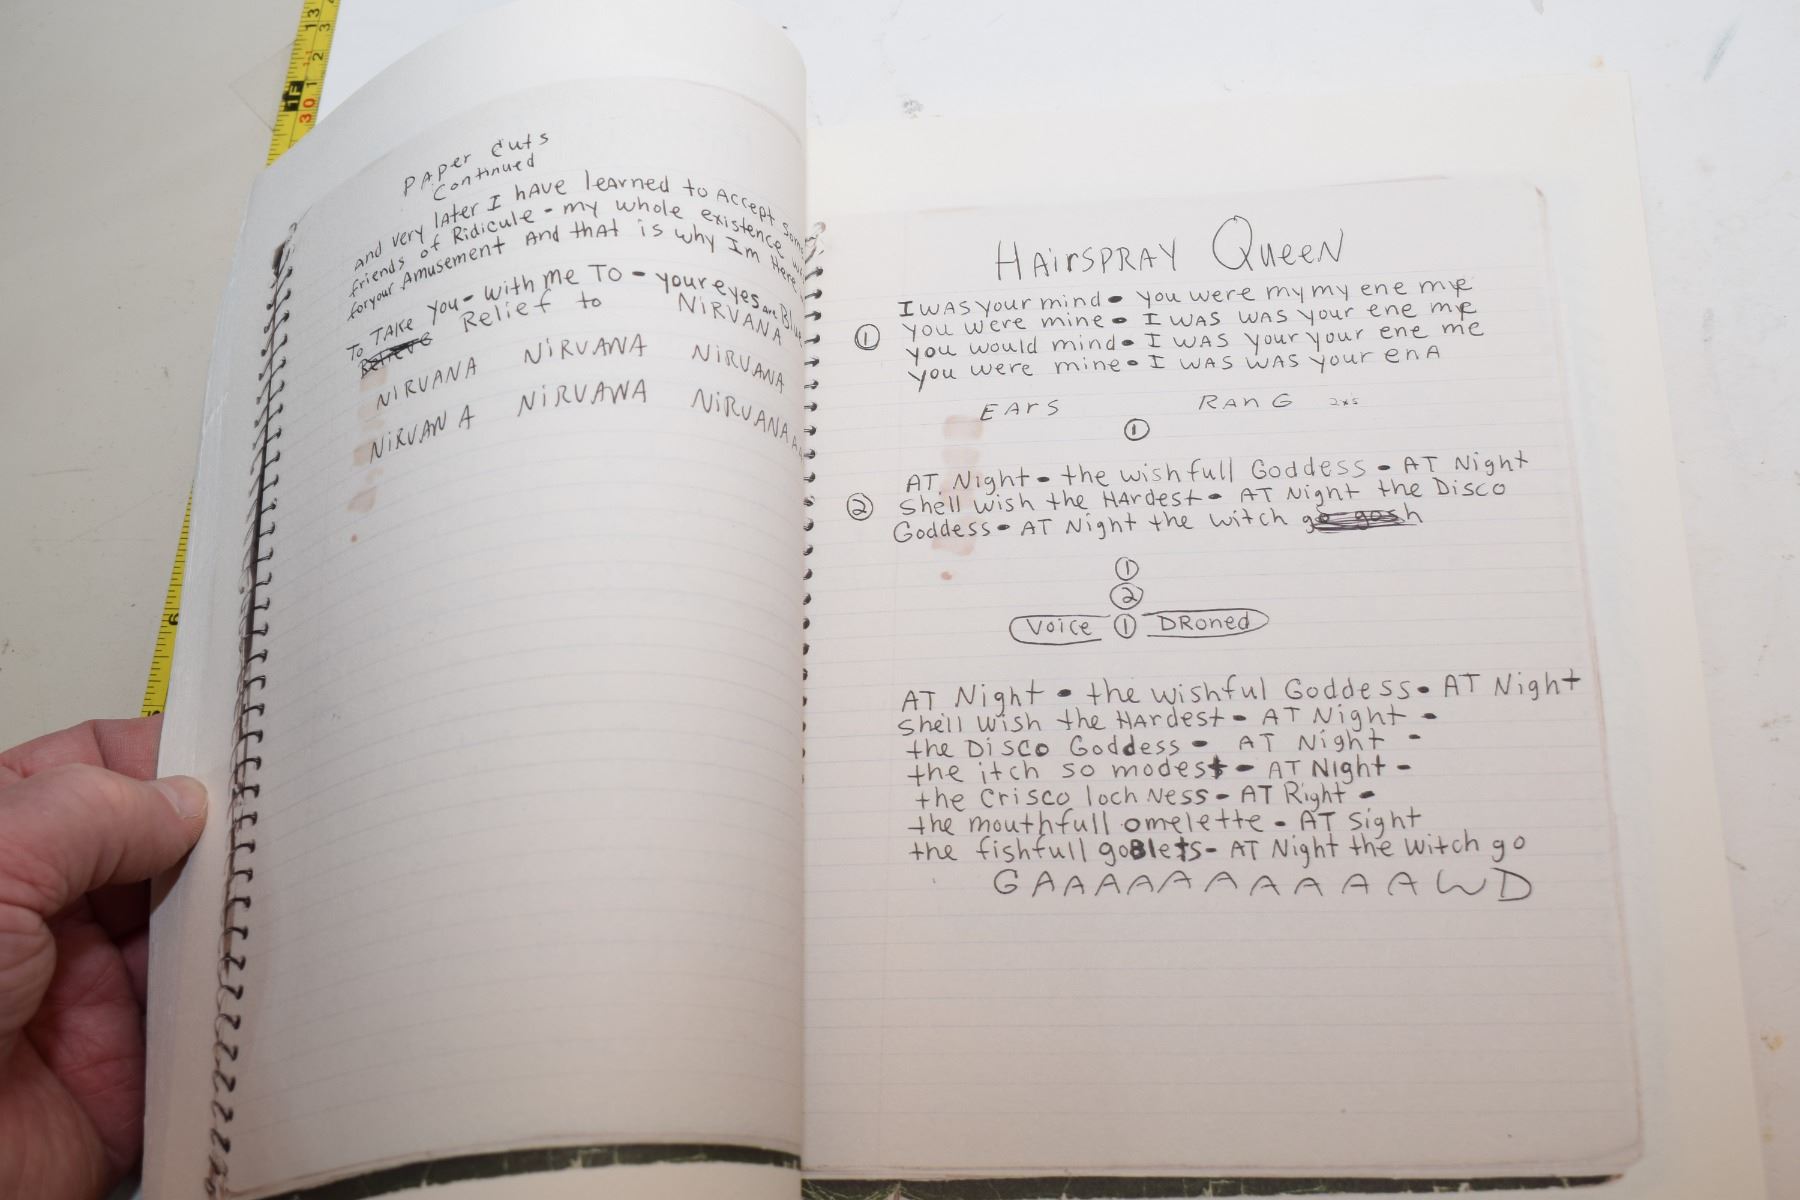 PAPer Cuts
Continued
And Very later I have learned to Accept some
friends of Ridicule - my whole existence
for your Amusement And that is why Im Here
To TAKe you - with me TO - your eyes are Blu
Relief to NiRVANA
NiRVANA NiRVANA NiRVANA
NiRVANA NiRVANA NiRVANA
HAirSPRAY Queen
I WAS your mind - you were my my ene mye
① you were mine - I WAS WAS your ene mye
you would mind - I WAS your your ene me
you were mine - I WAS WAS your enA
EArS RAnG 2xs
①
AT Night - the wishfull Goddess - AT Night
② She'll wish the HArdest - AT Night the Disco
Goddess - AT Night the witch go gosh
①
②
Voice ① DRoned
AT Night - the wishful Goddess - AT Night
She'll wish the HArdest - AT Night -
the Disco Goddess - AT Night -
the itch so modest - AT Night -
the Crisco loch Ness - AT Right -
the mouthfull omelette - AT Sight
the fishfull goBlets - AT Night the witch go
GAAAAAAAAAAWD
1F
30
13
1
2
3
6
5